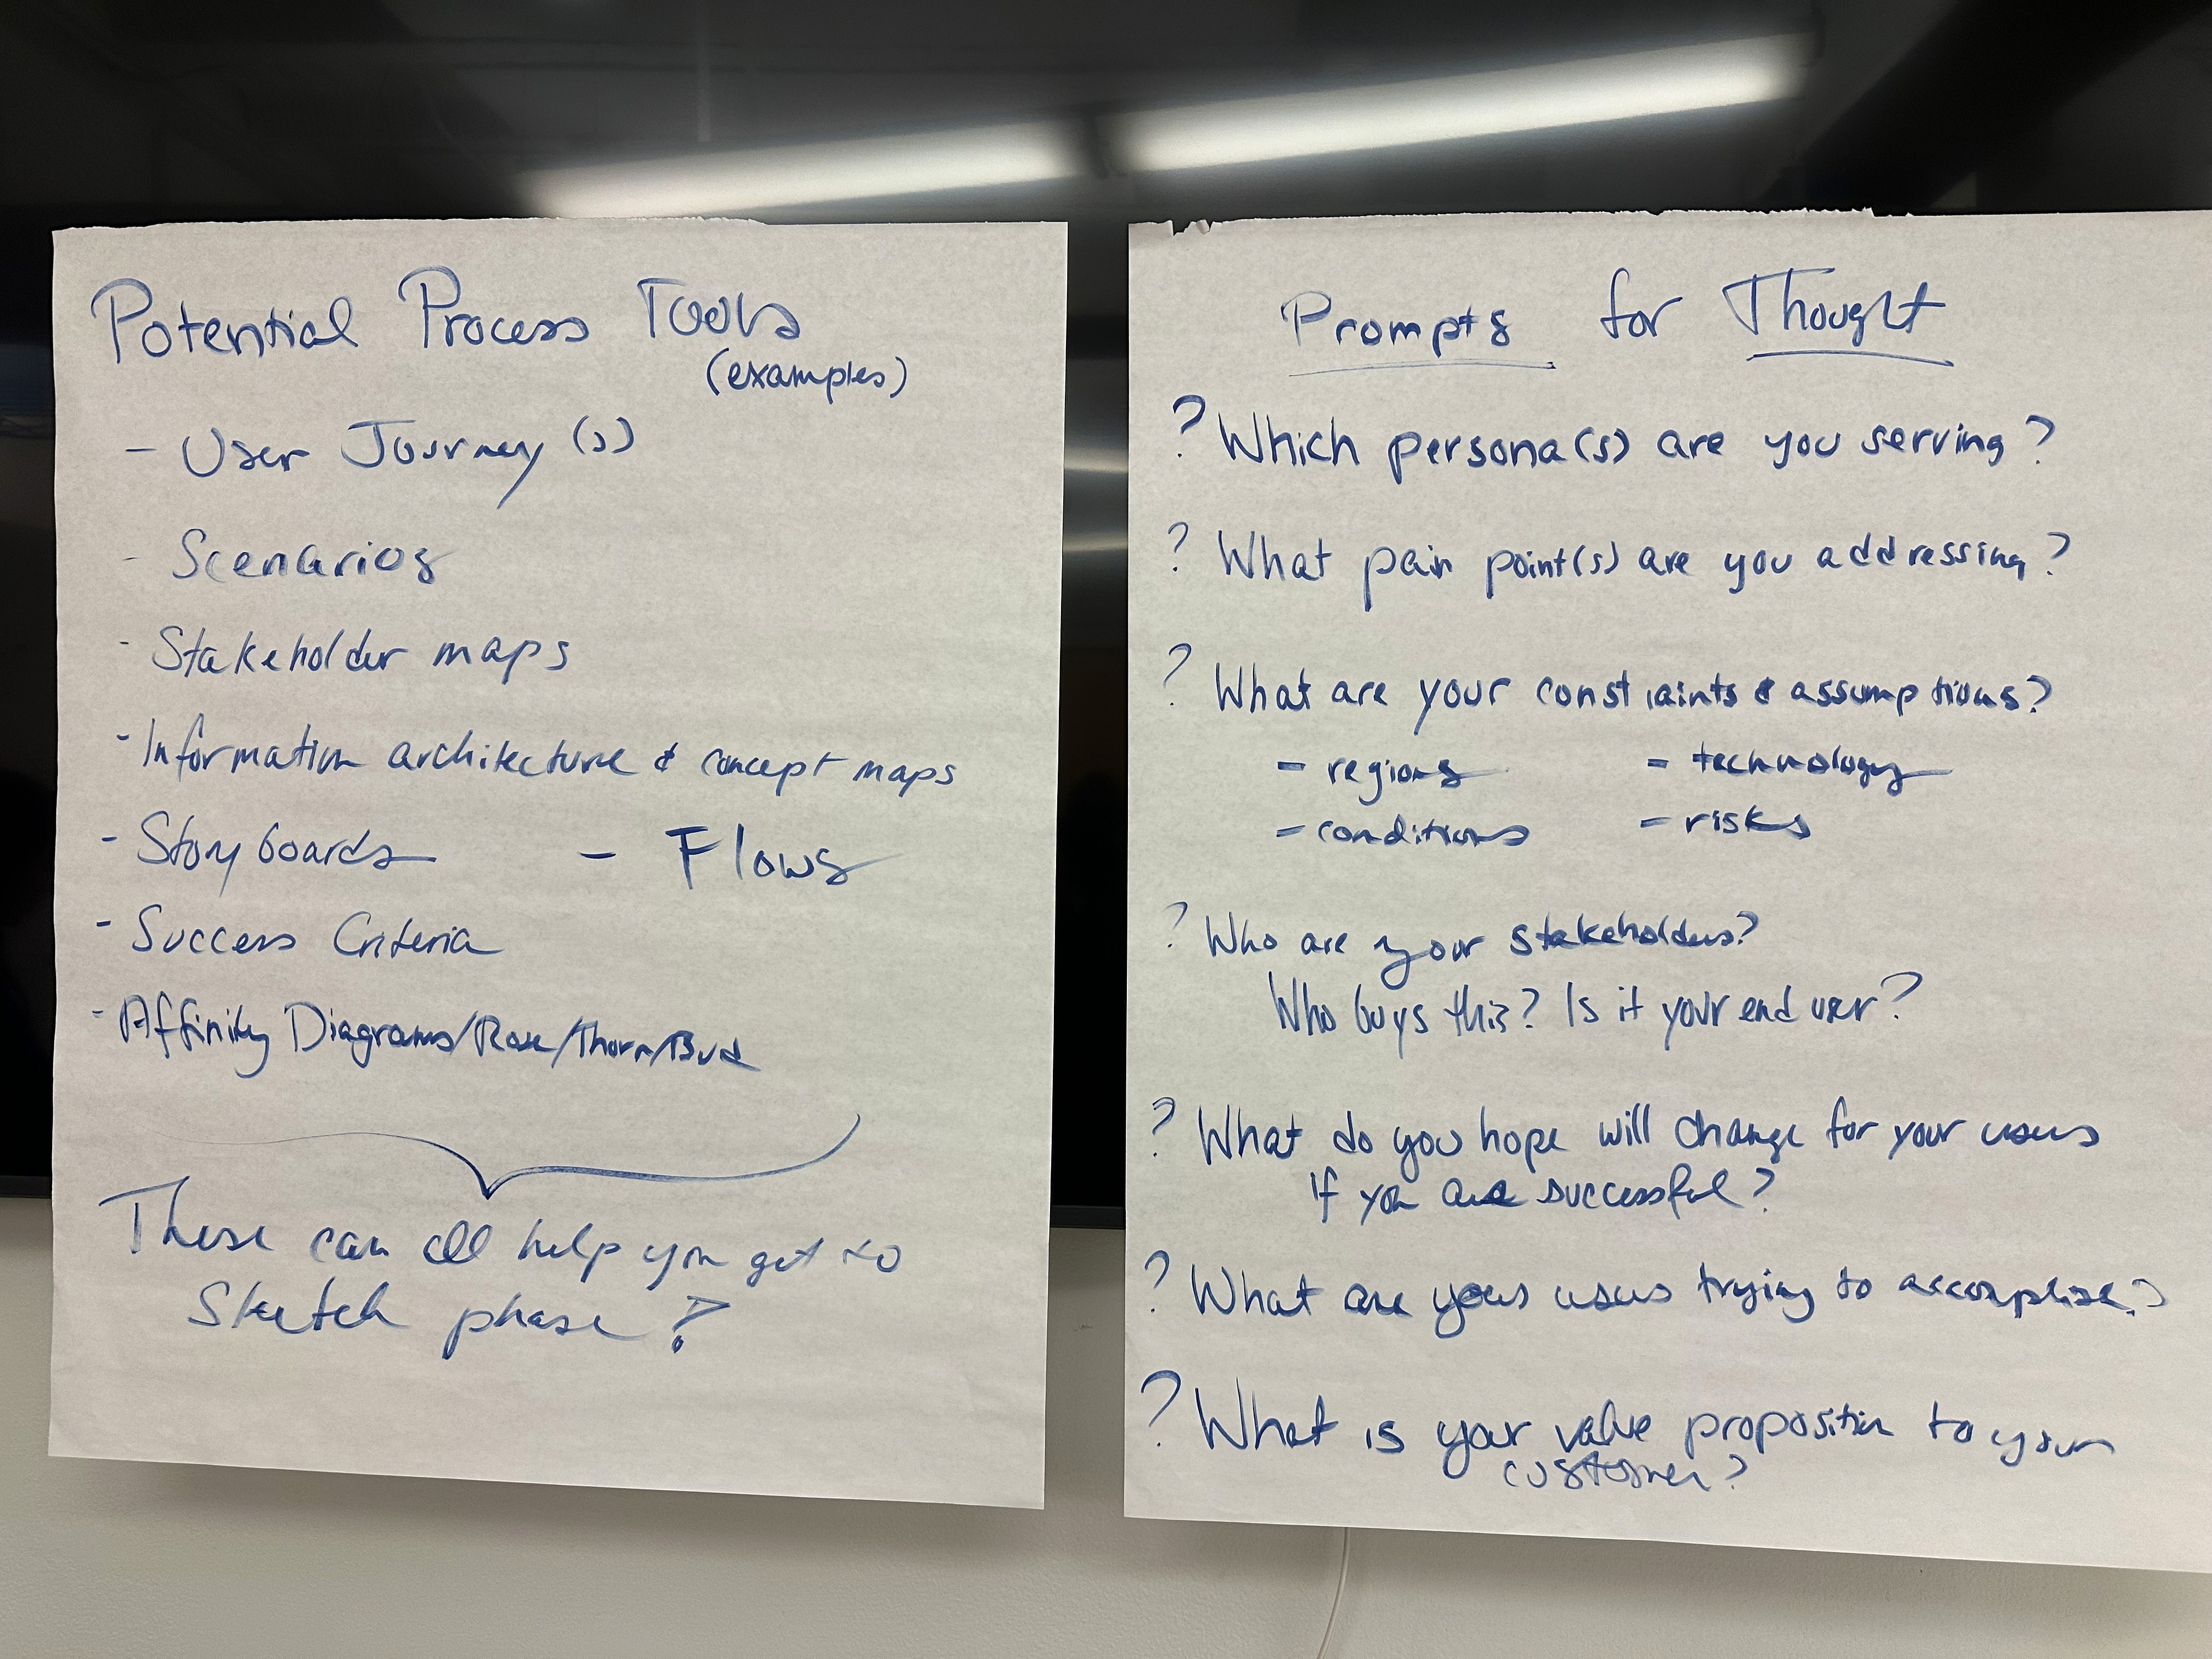 Potential Process Tools
(examples)
- User Journey (s)
- Scenarios
- Stakeholder maps
- Information architecture & concept maps
- Storyboards - Flows
- Success Criteria
- Affinity Diagrams/Rose/Thorn/Bud
These can all help you get to
Sketch phase?
Prompts for Thought
? Which persona(s) are you serving?
? What pain point(s) are you addressing?
? What are your constraints & assumptions?
- regions - technology
- conditions - risks
? Who are your stakeholders?
Who buys this? Is it your end user?
? What do you hope will change for your users
if you are successful?
? What are your users trying to accomplish?
? What is your value proposition to your
customer?